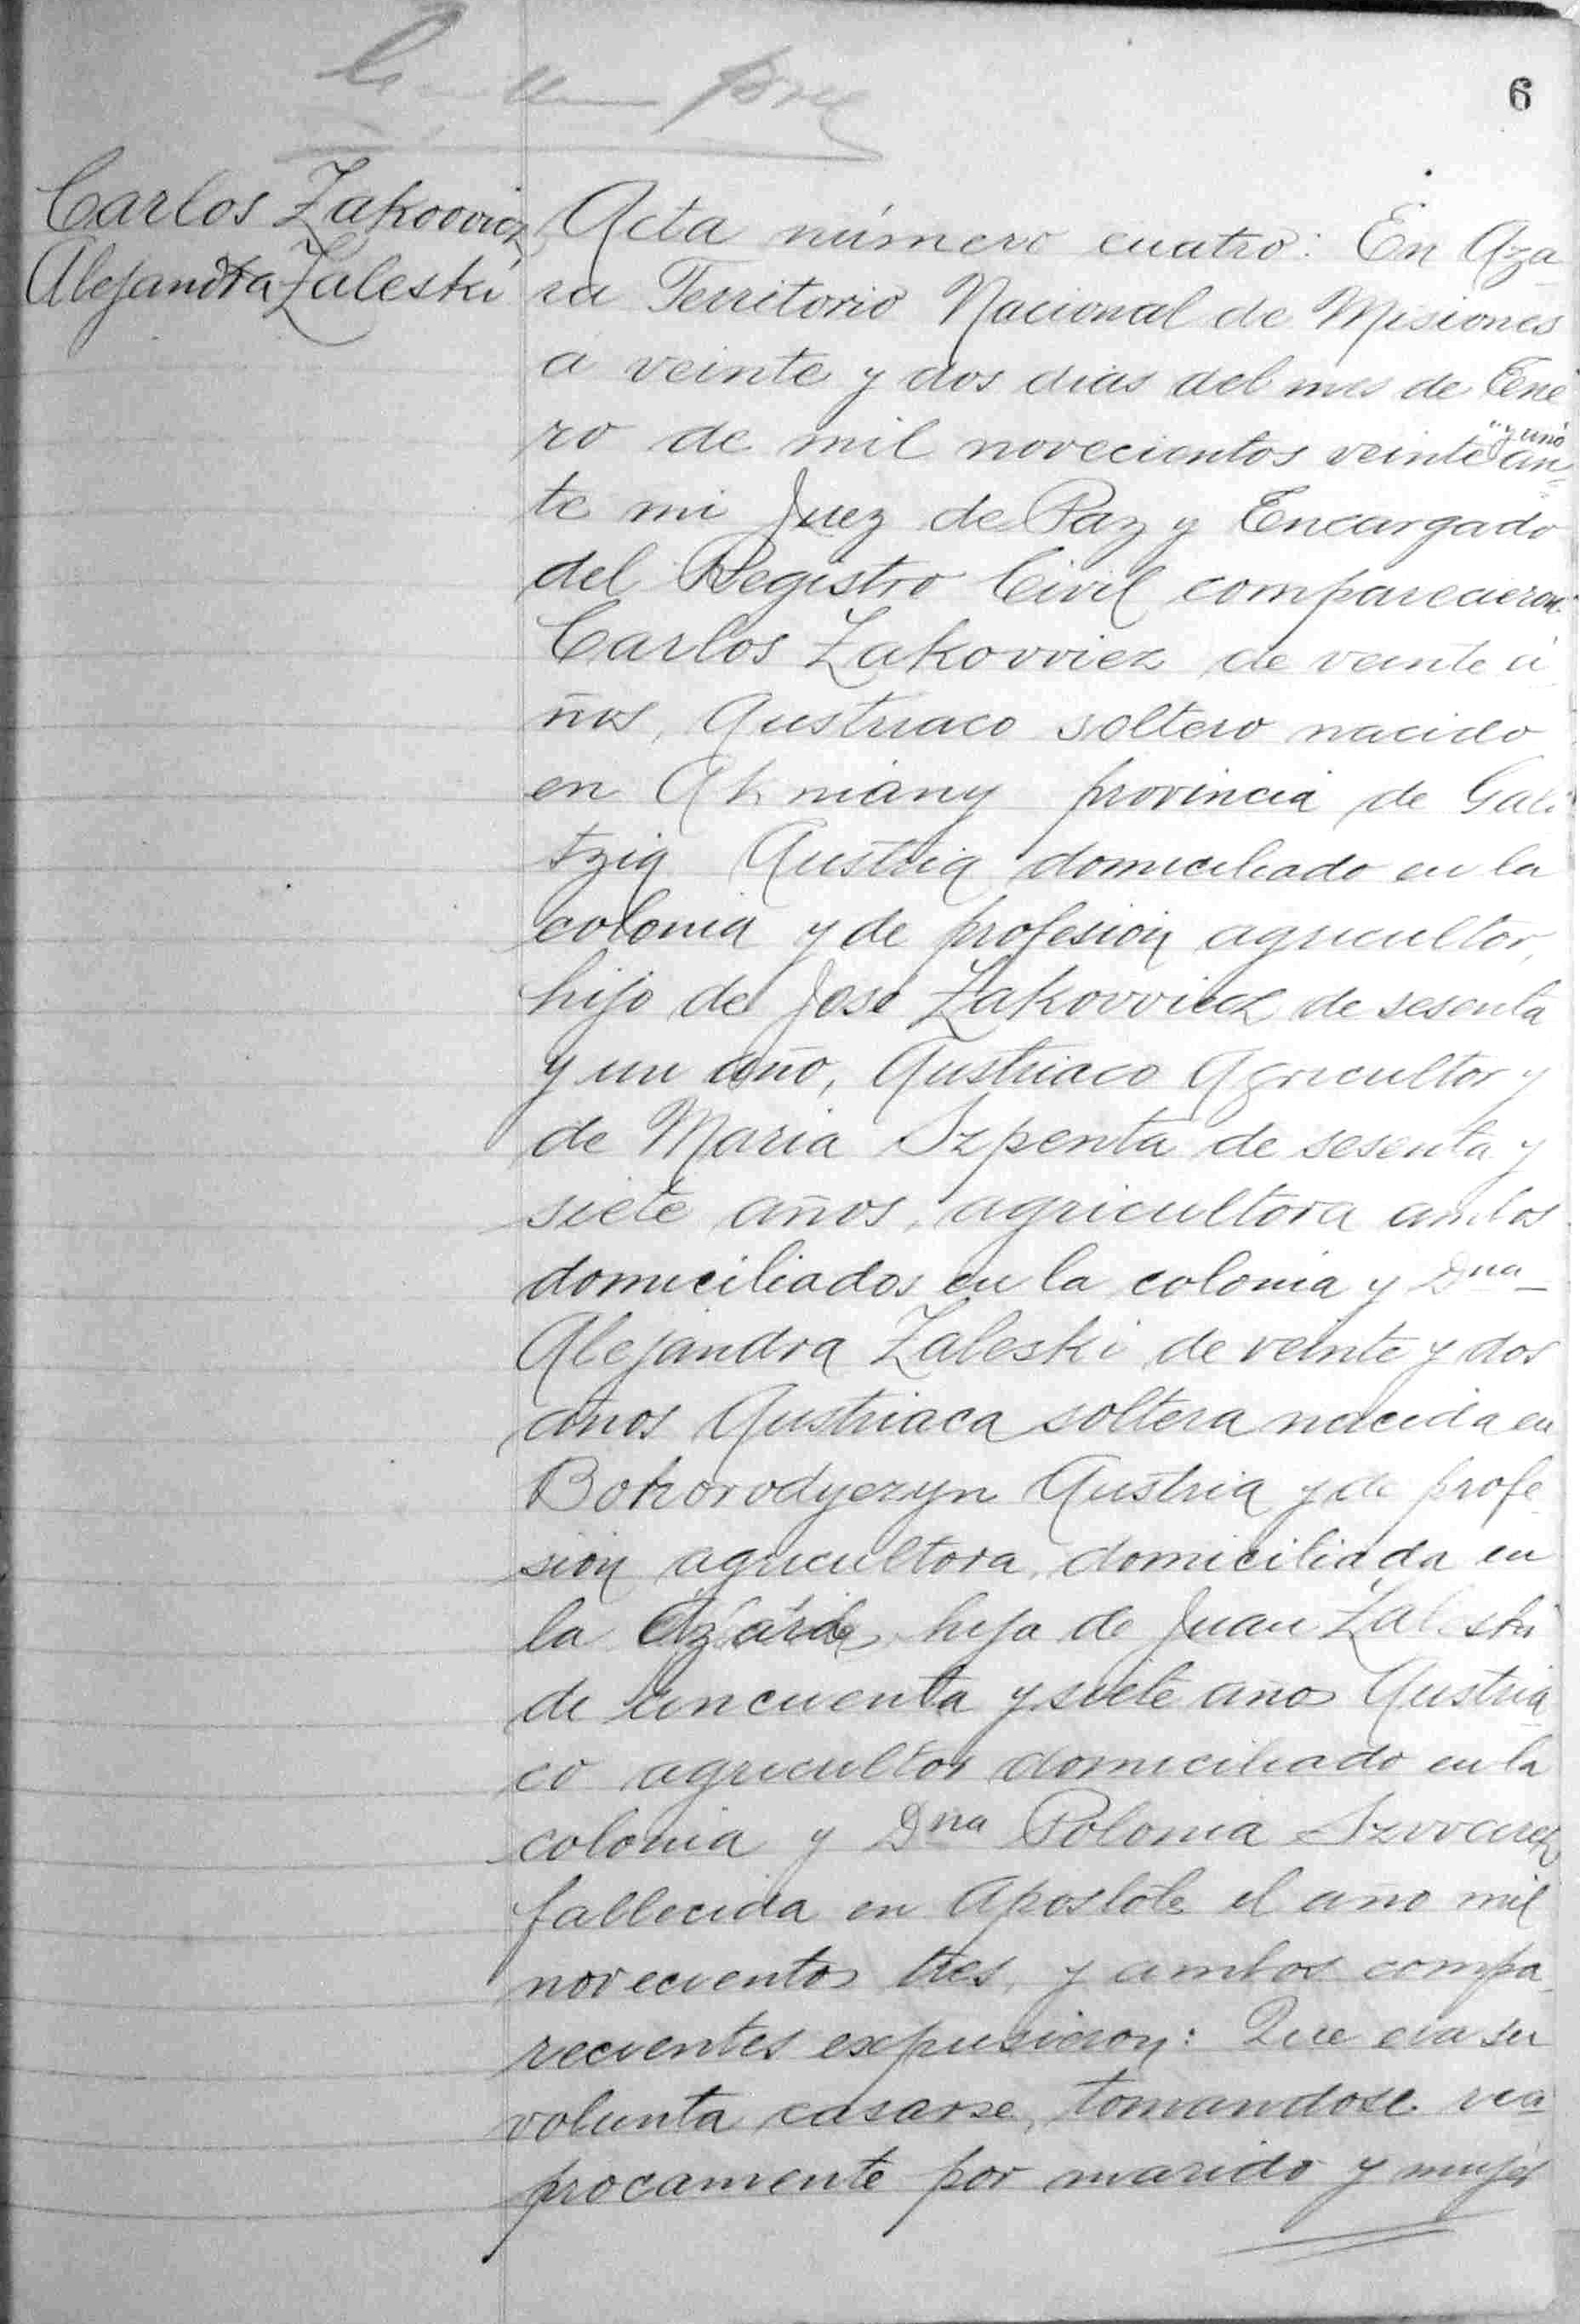 6
Carlos Zakovvicz
Alejandra Zaleski
Acta número cuatro: En Aza
ra Territorio Nacional de Misiones
á veinte y dos dias del mes de Ene
ro de mil novecientos veinte "y uno" an-
te mi Juez de Paz y Encargado
del Registro Civil comparecieron:
Carlos Zakovviez de veinte a
ños, Austriaco soltero nacido
en Akniany provincia de Gali
tzia Austria domiciliado en la
colonia y de profesion agricultor,
hijo de José Zakovvicz de sesenta
y un año, Austriaco Agricultor y
de Maria Szpenta de sesenta y
siete años, agricultora ambos
domiciliados en la colonia y Dna
Alejandra Zaleski de veinte y dos
años Austriaca soltera nacida en
Bohorodyezyn Austria y de profe
sion agricultora, domiciliada en
la hija de Juan Zaleski
de cincuenta y siete años Austria
co agricultor domiciliado en la
colonia y Dna Polonia
fallecida en Apostole el año mil
novecientos tres, y ambos compa
recientes expusieron: Que era su
volunta casarse, tomandose reci
procamente por marido y mujer